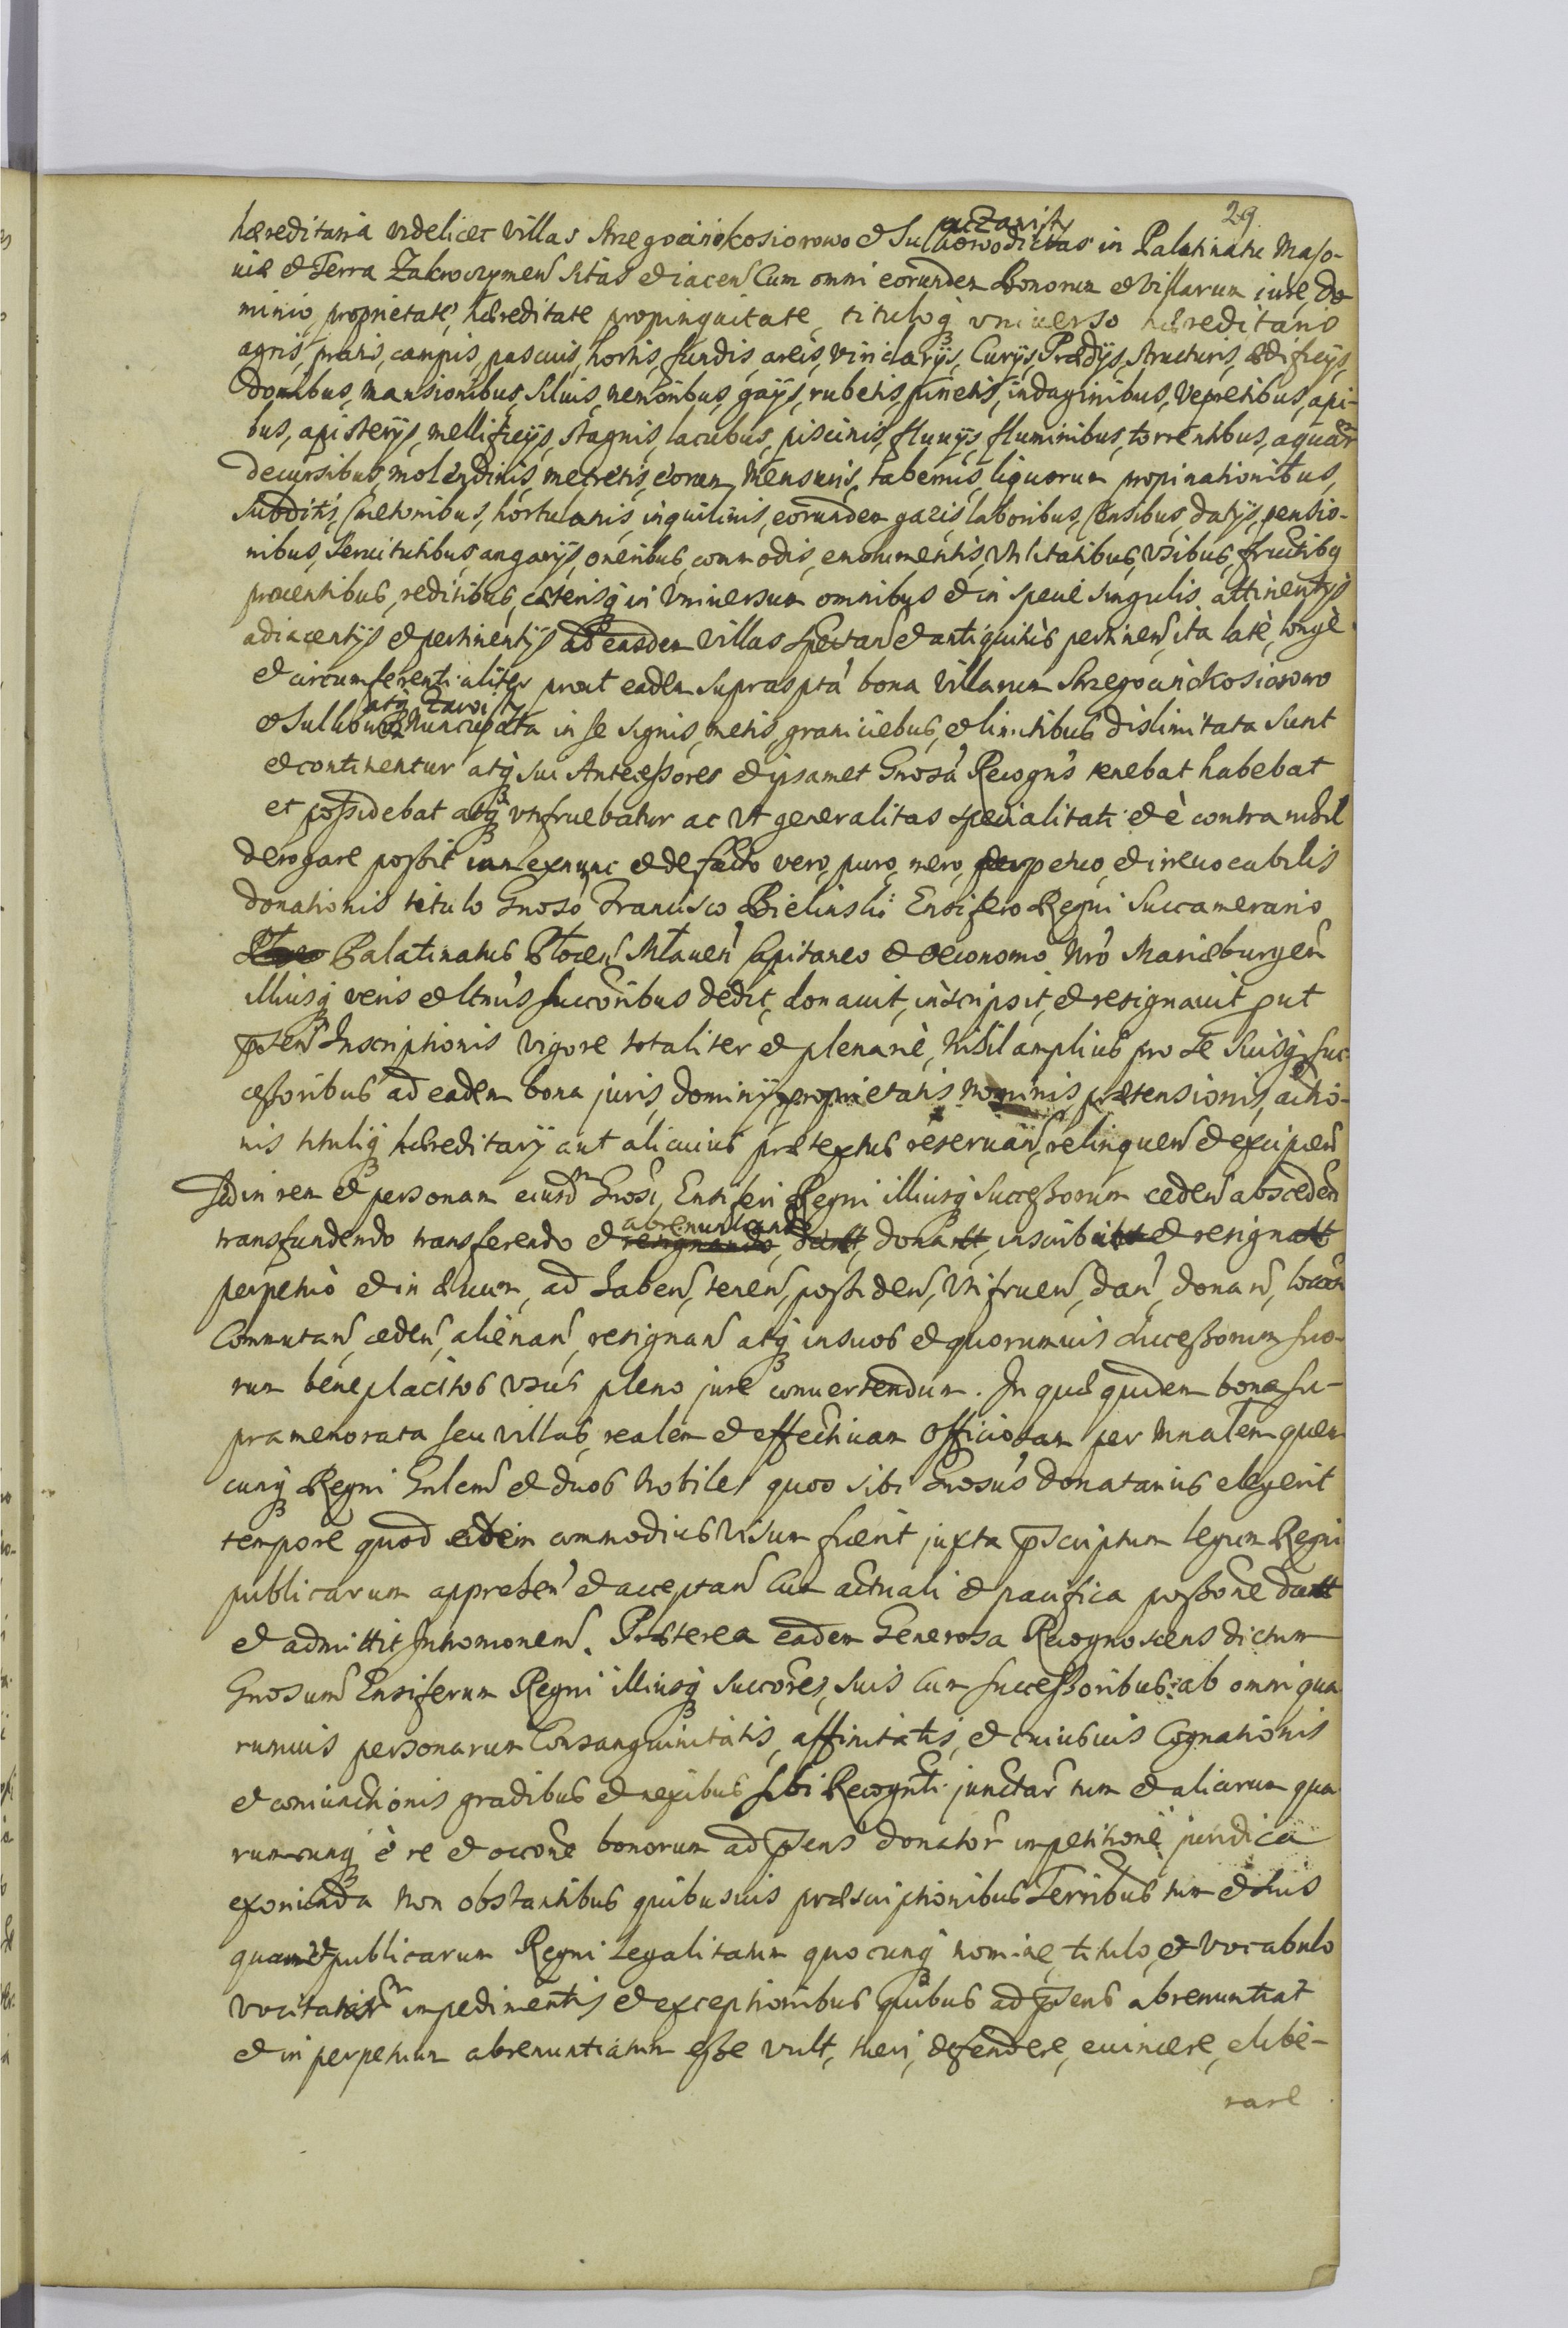 29.
hæreditaria videlicet villas Strzegocinkosiorowo et Sulkowo ac Zawisty dictas in Palatinatu Maso-
uiæ et Terra Zakroczymen̄ sitas et iacen̄ Cum omni eorundem bonorum et villarum iure, do
minio, proprietate, hæreditate propinquitate, tituloq̨ vniuerso hæreditario
agris, pratis, campis, pascuis, hortis, fundis, areis, viridarijs, Curijs, Prædijs, structuris, ædificijs,
domibus, mansionibus, Siluis, nemoribus, gajis, rubetis, pinetis, indaginibus, vepretibus, api-
bus, apisterijs, mellificijs, stagnis, lacubus, piscinis, fluuijs, fluminibus, torrentibus, aquar̄
decursibus, molendinis, metretis, eorum, mensuris, tabernis, liquorum propinationibus,
Subditis, Cmetonibus, hortulanis, inquilinis, eorundem gazis, laboribus, Censibus, datijs, pensio-
nibus, Seruitutibus, angarijs, oneribus, commodis, emolumentis, vtilitatibus, vsibus, fructibq
prouentibus, reditibus, cæterisq̨ in vniuersum omnibus et in specie singulis attinentijs
adiacentijs et pertinentijs ad easdem villas spectan̄ et antiquitùs pertinen̄, ita latè, longè
et circumferentialiter prout eadem supraspta bona villarum Strzegocinkosiorowo
et Sulkowo atq̨ Zawisty nuncupata in se signis, metis, graniciebus, et limitibus dislimitata sunt
et continentur atq̨ sui Antecessores et ipsamet Gnosa Recogn̄s tenebat habebat
et possidebat atq̨ vtifruebatur ac vt generalitas specialitati et è contra nihil
derogare possit iam exnunc et de facto vero, puro, mero, perpetuo, et irreuocabilis
donationis titulo Gnoso Francisco Bielinski Ensifero Regni Succamerario
Palatinatus Płocen̄ Mlauen̄ Capitaneo et oeconomo nr̄o Mariæburgen̄
illiusq̨ veris et ltmis succoribus dedit, donauit, inscripsit, et resignauit put
pn̄tem Inscriptionis vigore totaliter et plenariè, nihil amplius pro se suisq̨ suc-
cessoribus ad eadem bona juris, dominij, proprietatis nominis, prætensionis, actio-
nis tituliq̨ hæreditarij aut alicuius prætextus reseruan̄, relinquen̄ et excipien̄
Sed in rem et personam eiusdm Gnosi Ensiferi Regni illiusq̨ Successorum ceden̄ absceden̄
transfundendo transferendo et resignando abrenuntiando, dat, donat, inscribit et resignat
perpetuò et in æuum, ad haben̄, tenen̄, possiden̄, vtifruen̄, dan̄, donan̄, locan̄
Commutan̄, ceden̄, alienan̄, resignan̄ atq̨ in suos et quorumuis Successorum suo-
rum beneplacitos vsus pleno jure conuertendum. In quæ quidem bona su-
pramemorata seu villas, realem et effectiuam officiosam per mnalem quem
cunq̨ Regni Gnlem et duos nobiles quos sibi Gnosus donatarius elegerit
tempore quod eidem commodius visum fuerit juxta pscriptum legum Regni
publicarum apprehen̄ et acceptan̄ Cum actuali et pacifica possone dat
et admittit Intromonem̄. Præterea eadem Generosa Recognoscens dictum
Gnosum Ensiferum Regni illiusq̨ succores, suis cum successoribus: ab omni qua
rumuis personarum Consanguinitatis, affinitatis, et cuiusuis Cognationis
et coniunctionis gradibus et nexibus sibi Recognti junctar̄ tum et aliarum qua
rumcunq̨ è re et occone bonorum ad pn̄s donator̄ impetitione juridica
exorienda non obstantibus quibusuis præscriptionibus Terribus tum et suis
quam et publicarum Regni legalitatum quocunq̨ nomine, titulo, et vocabulo
vocitatar̄ impedimentis et exceptionibus quibus ad pn̄s abrenuntiat
et in perpetuum abrenuntiatum esse vult, tueri, defendere, euincere, elibe-
rare